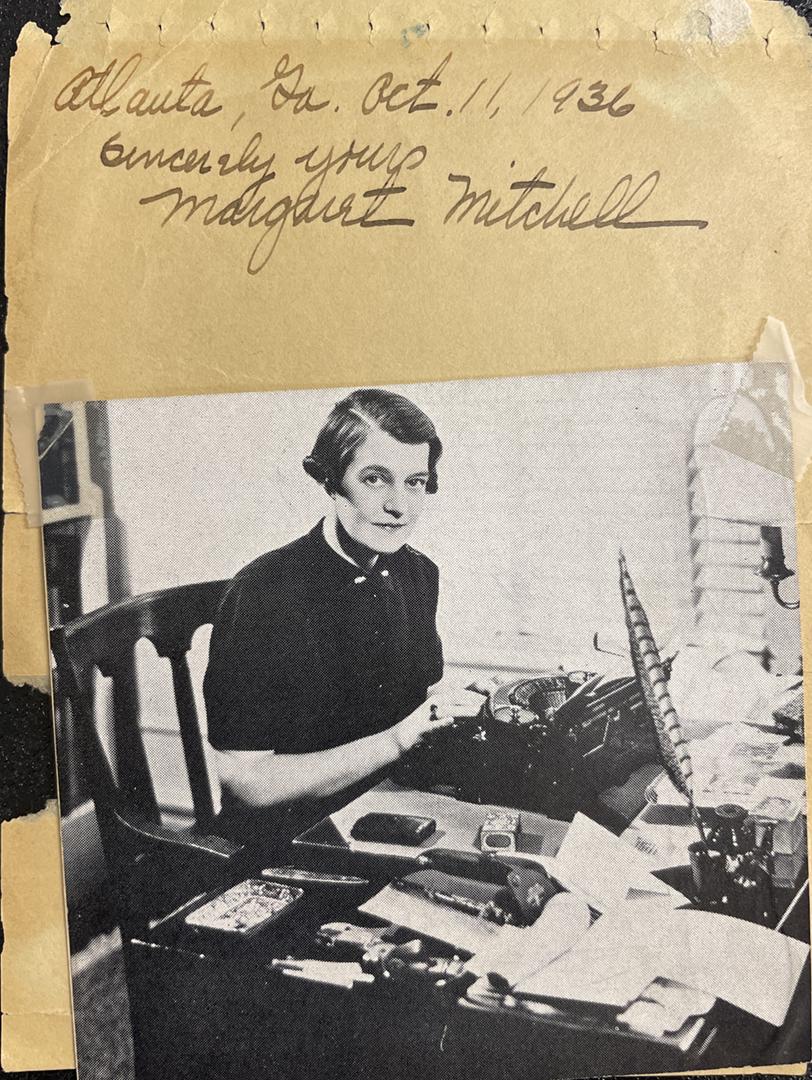 Atlanta, Ga. Oct. 11, 1936
Sincerely yours
Margaret Mitchell